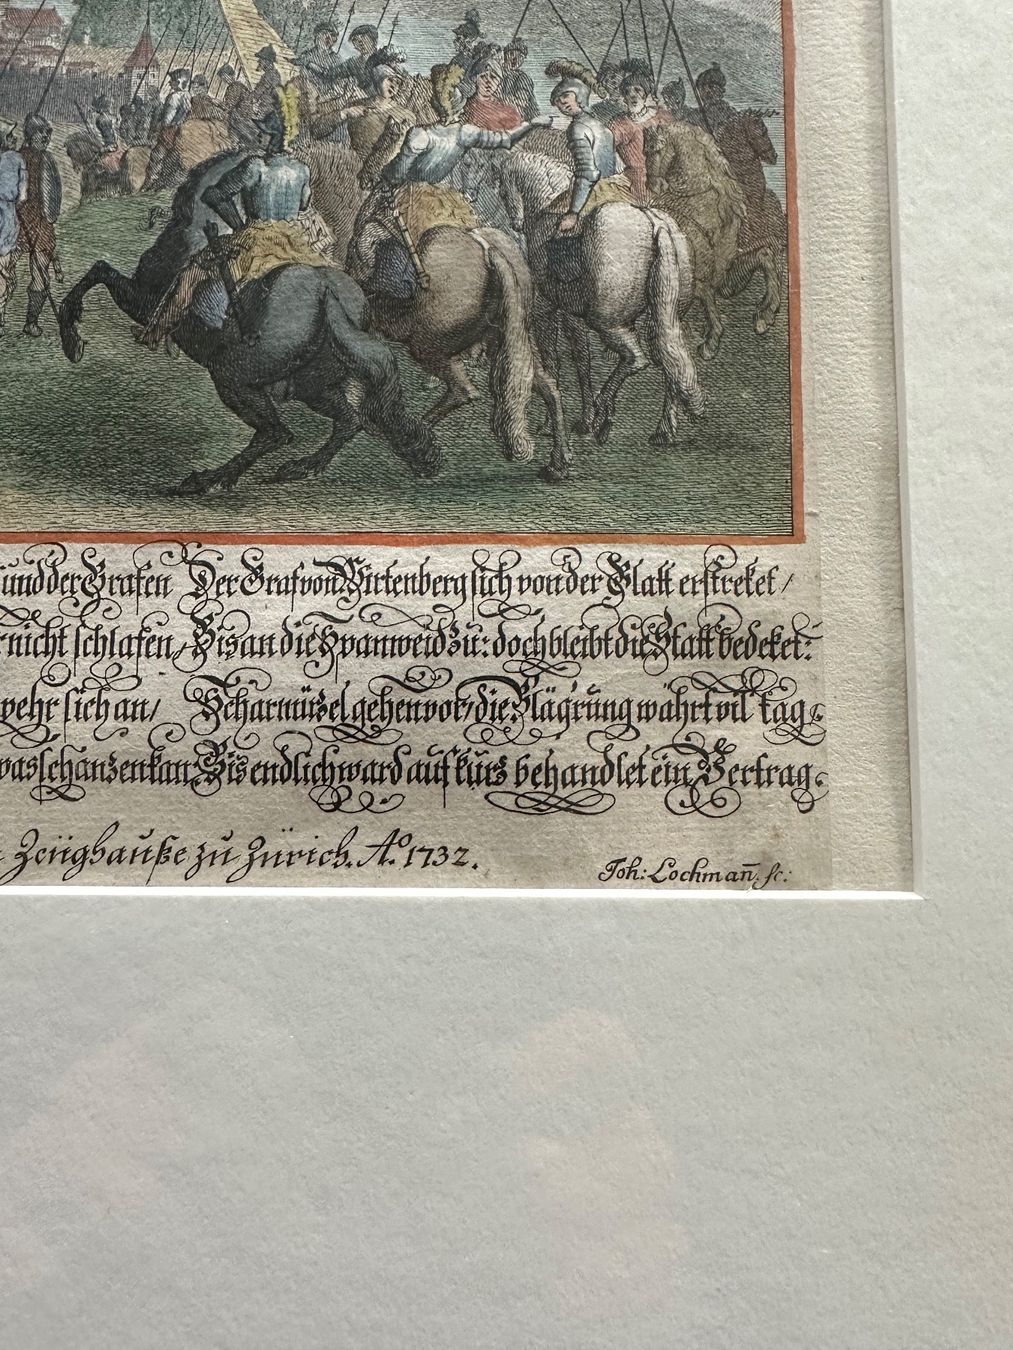 und der Grafen Der Graf von Wirtenberg sich von der Glatt erstreket /
nicht schlafen / Bis an die Spanweid zu: doch bleibt die Statt bedeket:
wehr sich an / Scharmüzel gehen vor / die Blägrung währt vil tag.
was schanzen kan: Bis endlich ward auf kurz behandlet ein Vertrag.
Zeüghauße zu Zürich. Aº. 1732.
Joh: Lochman̄. sc: